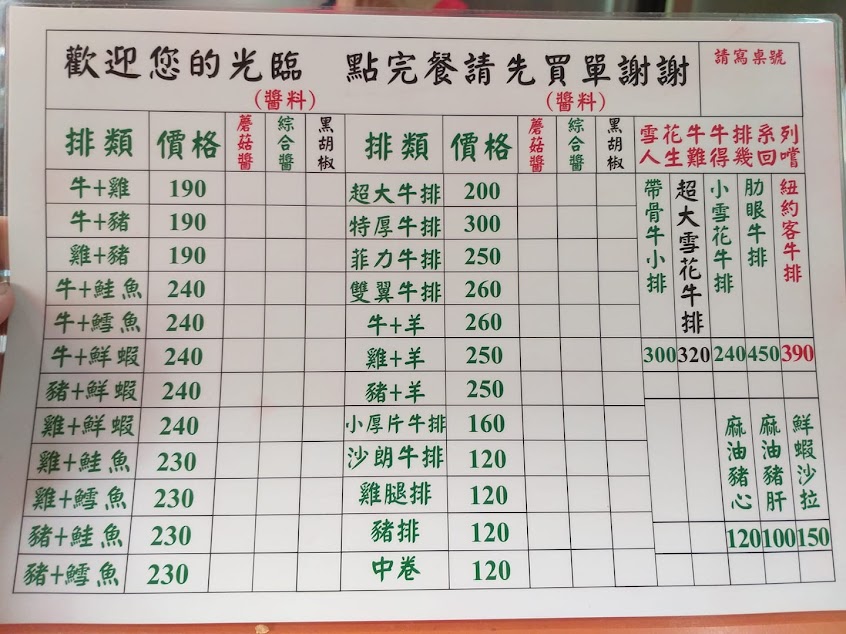 歡迎您的光臨 點完餐請先買單謝謝
請寫桌號
(醬料) (醬料)
排類 價格 蘑菇醬 綜合醬 黑胡椒 排類 價格 蘑菇醬 綜合醬 黑胡椒
雪花牛牛排系列
人生難得幾回嚐
牛+雞 190 超大牛排 200
牛+豬 190 特厚牛排 300
雞+豬 190 菲力牛排 250
牛+鮭魚 240 雙翼牛排 260
牛+鱈魚 240 牛+羊 260
牛+鮮蝦 240 雞+羊 250
豬+鮮蝦 240 豬+羊 250
雞+鮮蝦 240 小厚片牛排 160
雞+鮭魚 230 沙朗牛排 120
雞+鱈魚 230 雞腿排 120
豬+鮭魚 230 豬排 120
豬+鱈魚 230 中卷 120
帶骨牛小排 超大雪花牛排 小雪花牛排 肋眼牛排 紐約客牛排
300 320 240 450 390
麻油豬心 麻油豬肝 鮮蝦沙拉
120 100 150